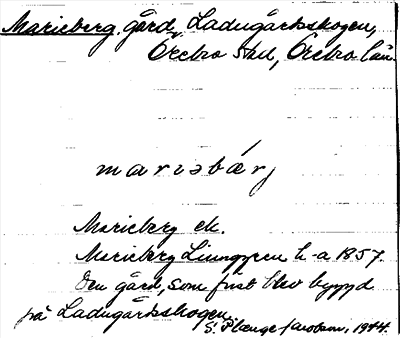 Marieberg gård, Ladugårdsskogen,
Örebro stad, Örebro län.
mariəbǽrj
Marieberg ek.
Marieberg Ljunggren h-a 1857.
Den gård, som först blev byggd
på Ladugårdsskogen.
S. Plænge Jacobson, 1944.